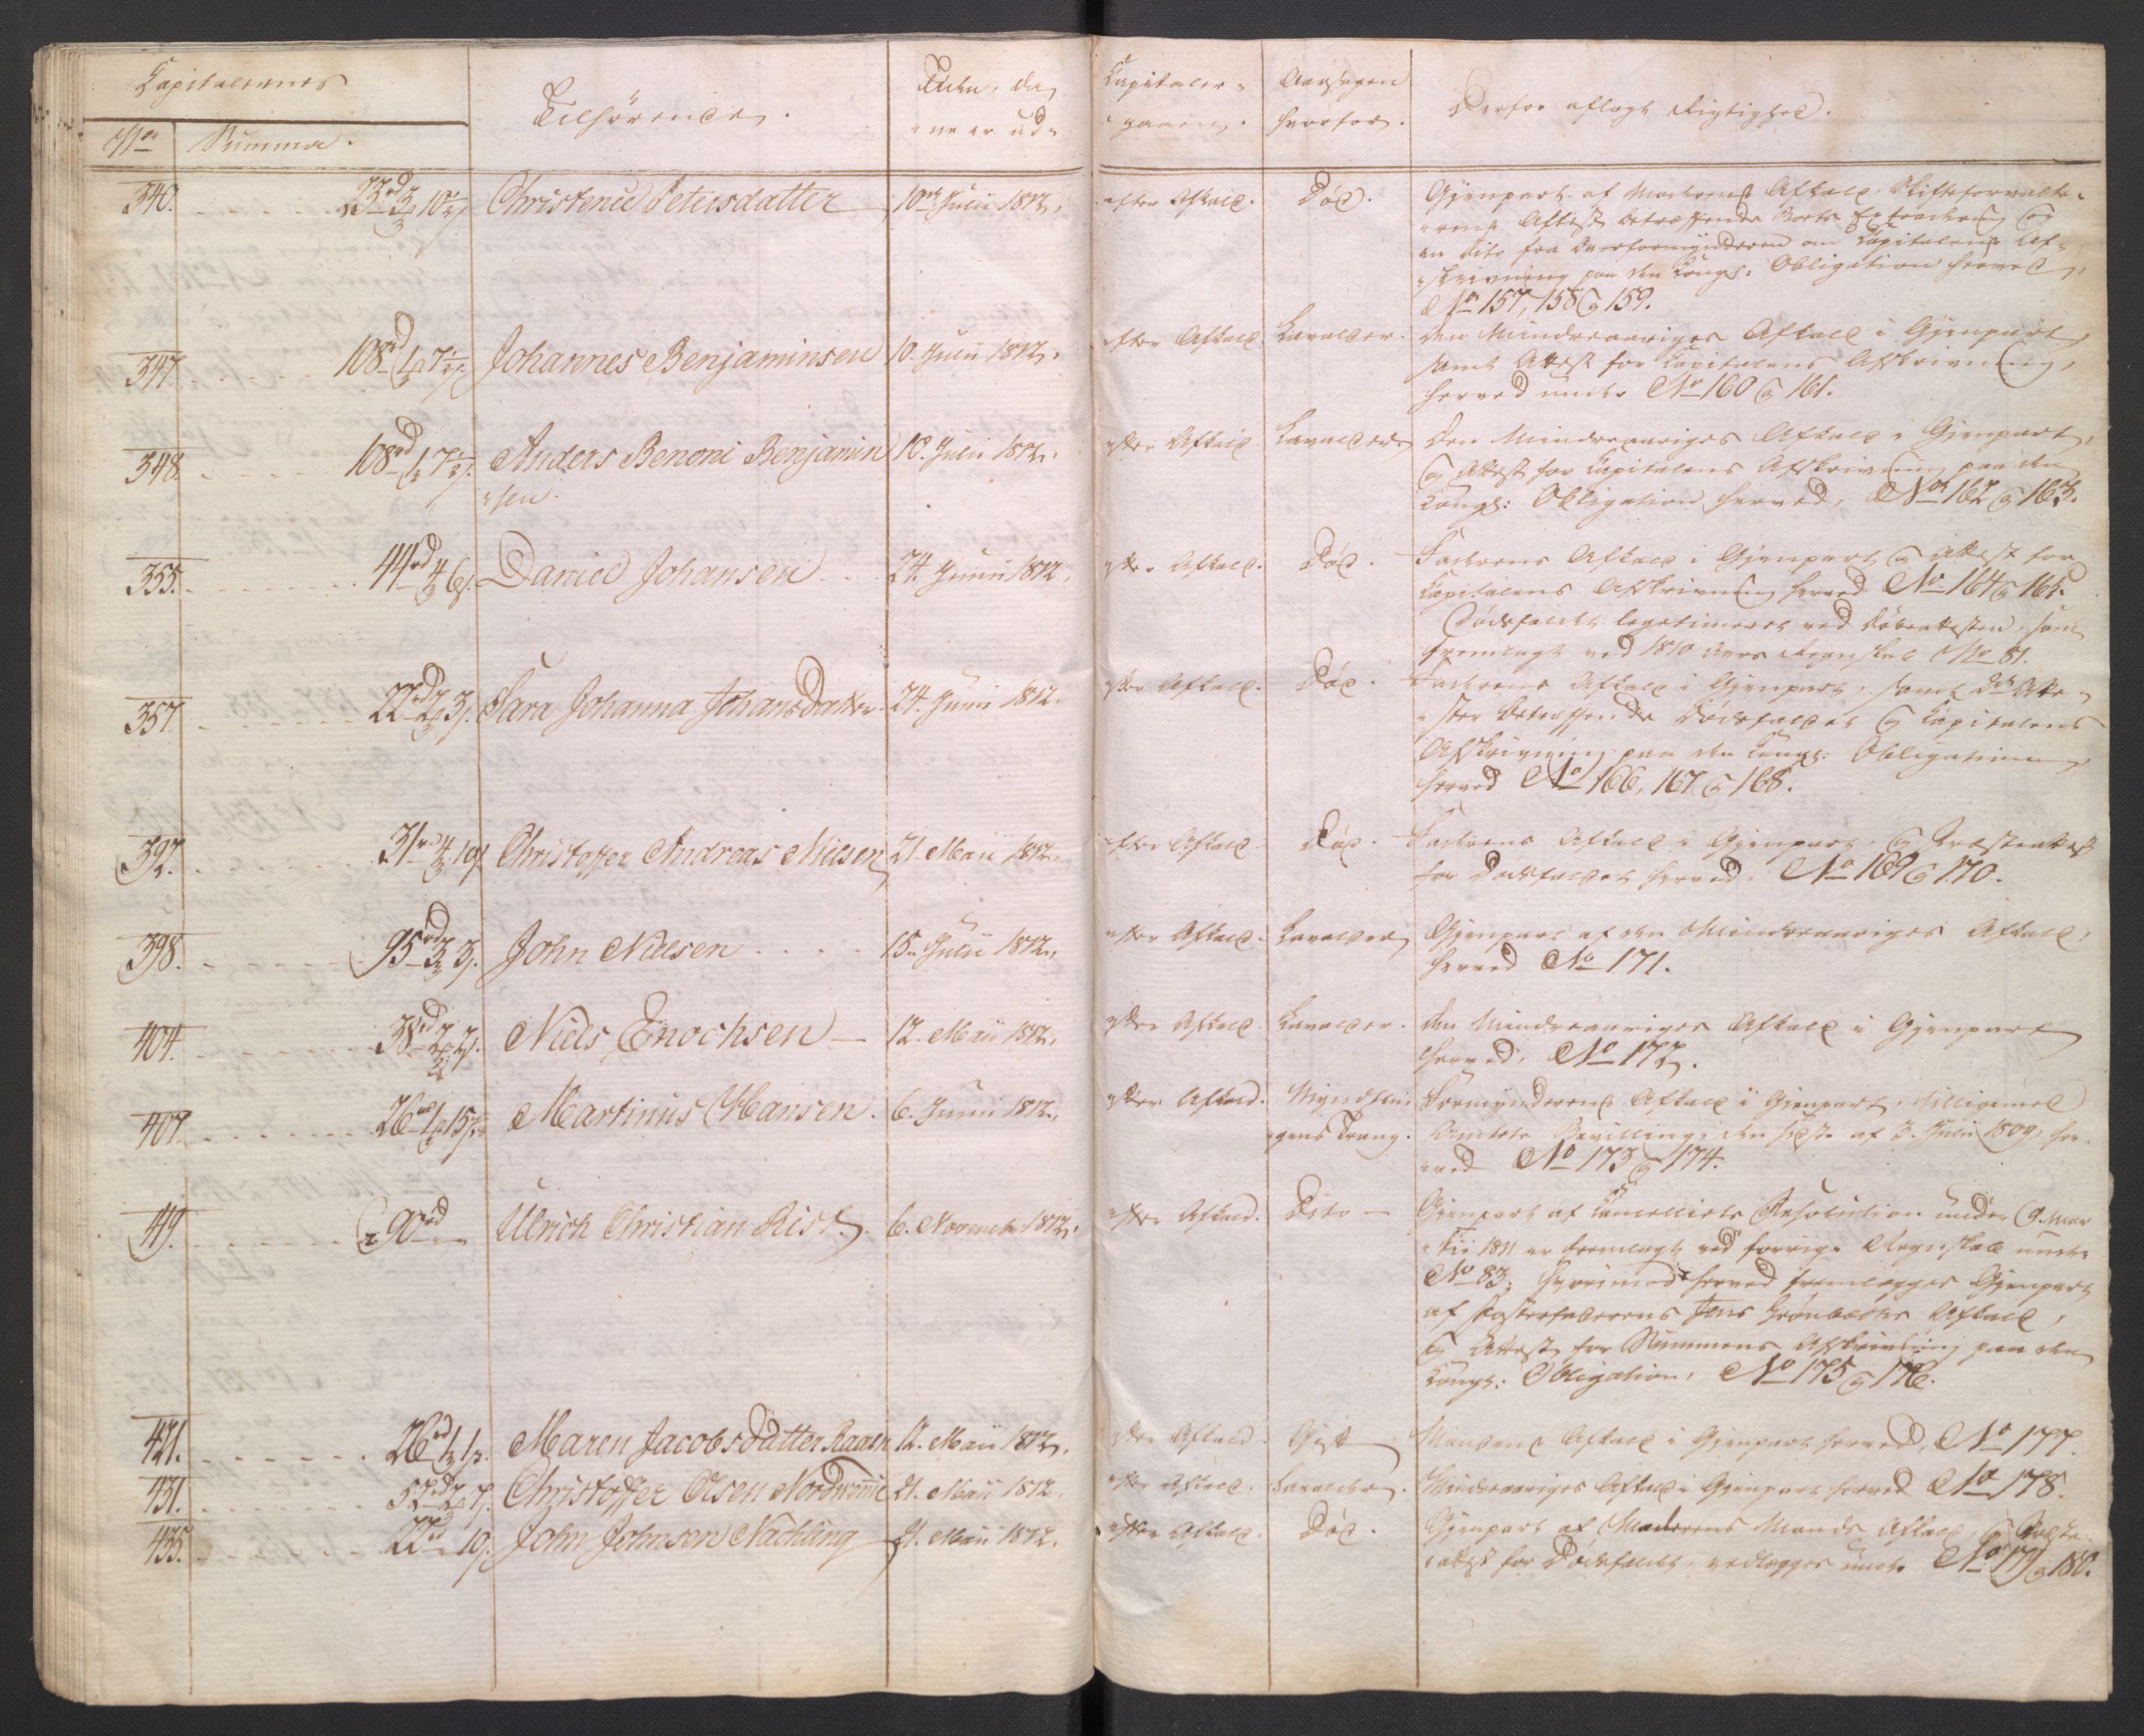 Capitalernes
Tilhørende.
Tiden, da
Capitaler-
Aarsagen
Derfor aflagt Rigtighed.
No
Summa.
-ne er ud-
-gaaen.
hvorfor.
340. 23rd 3 10½ Christence Petersdatter 10de Julii 1812, efter Afkald. Død. Gjenpart af Moderens Afkald, Skifteforvalte-
-rens Attest betræffende Boets Extradering og
en dito fra Overformynderen om Capitalens Af-
-skrivning paa den Kongl: Obligation herved,
No 157, 158 og 159.
347. 108rd 1 7½ Johannes Benjaminsen 10. Julii 1812, efter Afkald. Lavalder. Den Mindreaariges Afkald i Gjenpart,
samt Attest for Capitalens Afskrivning,
herved under No 160 og 161.
348. 108rd 1 7½ Anders Benoni Benjamin 10. Julii 1812, efter Afkald. Lavalder Den Mindreaariges Afkald i Gjenpart,
-sen.
og Attest for Capitalens Afskrivning paa den
Kongl: Obligation herved, No 162 og 163.
355. 44rd 4 6 Daniel Johansen 24. Junii 1812, efter Afkald. Død. Faderens Afkald i Gjenpart og Attest for
Capitalens Afskrivning herved No 164 og 165.
Dødsfaldet legitimeret ved Døbeattesten, som
fremlagt ved 1810 Aars Regnskab No 81.
357. 22rd 2 3 Sara Johanna Johansdatter 24. Junii 1812. efter Afkald. Død. Faderens Afkald i Gjenpart, samt de Atte-
-ster betræffende Dødsfaldet og Capitalens
Afskrivning paa den Kongl: Obligation,
herved No 166, 167 og 168.
392. 31rd 4 10 Christoffer Andreas Nilsen 21. Maii 1812, efter Afkald. Død. Faderens Afkald i Gjenpart, og Præsteattest
for Dødsfaldet herved. No 169 og 170.
398. 95rd 3 3 John Nilsen 15. Julii 1812, efter Afkald. Lavalder, Gjenpart af den Mindreaariges Afkald,
herved No 171.
404. 38rd 2 2 Niels Enochsen 12. Maii 1812, efter Afkald. Lavalder. Den Mindreaariges Afkald i Gjenpart
herved, No 172.
407. 26rd 1 15 Martinus Hansen. 6. Junii 1812, efter Afkald. Myndtlin- Formynderens Afkald i Gjenpart, tilligemed
-gens Trang. Amtets Bevilling, den sidste af 3. Julii 1809, her-
-ved No 173 og 174.
419. 90rd Ulrich Christian Rist. 6. November 1812, efter Afkald. Dito Gjenpart af Cancelliets Resolution under 9. Mar-
-tii 1811 er fremlagt ved forrige Regnskab under
No 83; hvorimod herved fremlægges Gjenpart
af Fosterfaderens Jens Grønbechs Afkald,
og Attest for Summens Afskrivning paa den
Kongl: Obligation, No 175 og 176.
421. 26rd 1 1 Maren Jacobsdatter Raaen 12. Maii 1812, efter Afkald. Gift Mandens Afkald i Gjenpart herved, No 177.
431. 52rd 2 7 Christoffer Olsen 21. Maii 1812. efter Afkald. Lavalder. Mindreaariges Afkald i Gjenpart herved No 178.
435. 22rd 10 John Johnsen Nachling 21. Maii 1812. efter Afkald. Død. Gjenpart af Moderens Mands Afkald, og Præste-
-attest for Dødsfaldet, vedlægges under No 179 og 180.